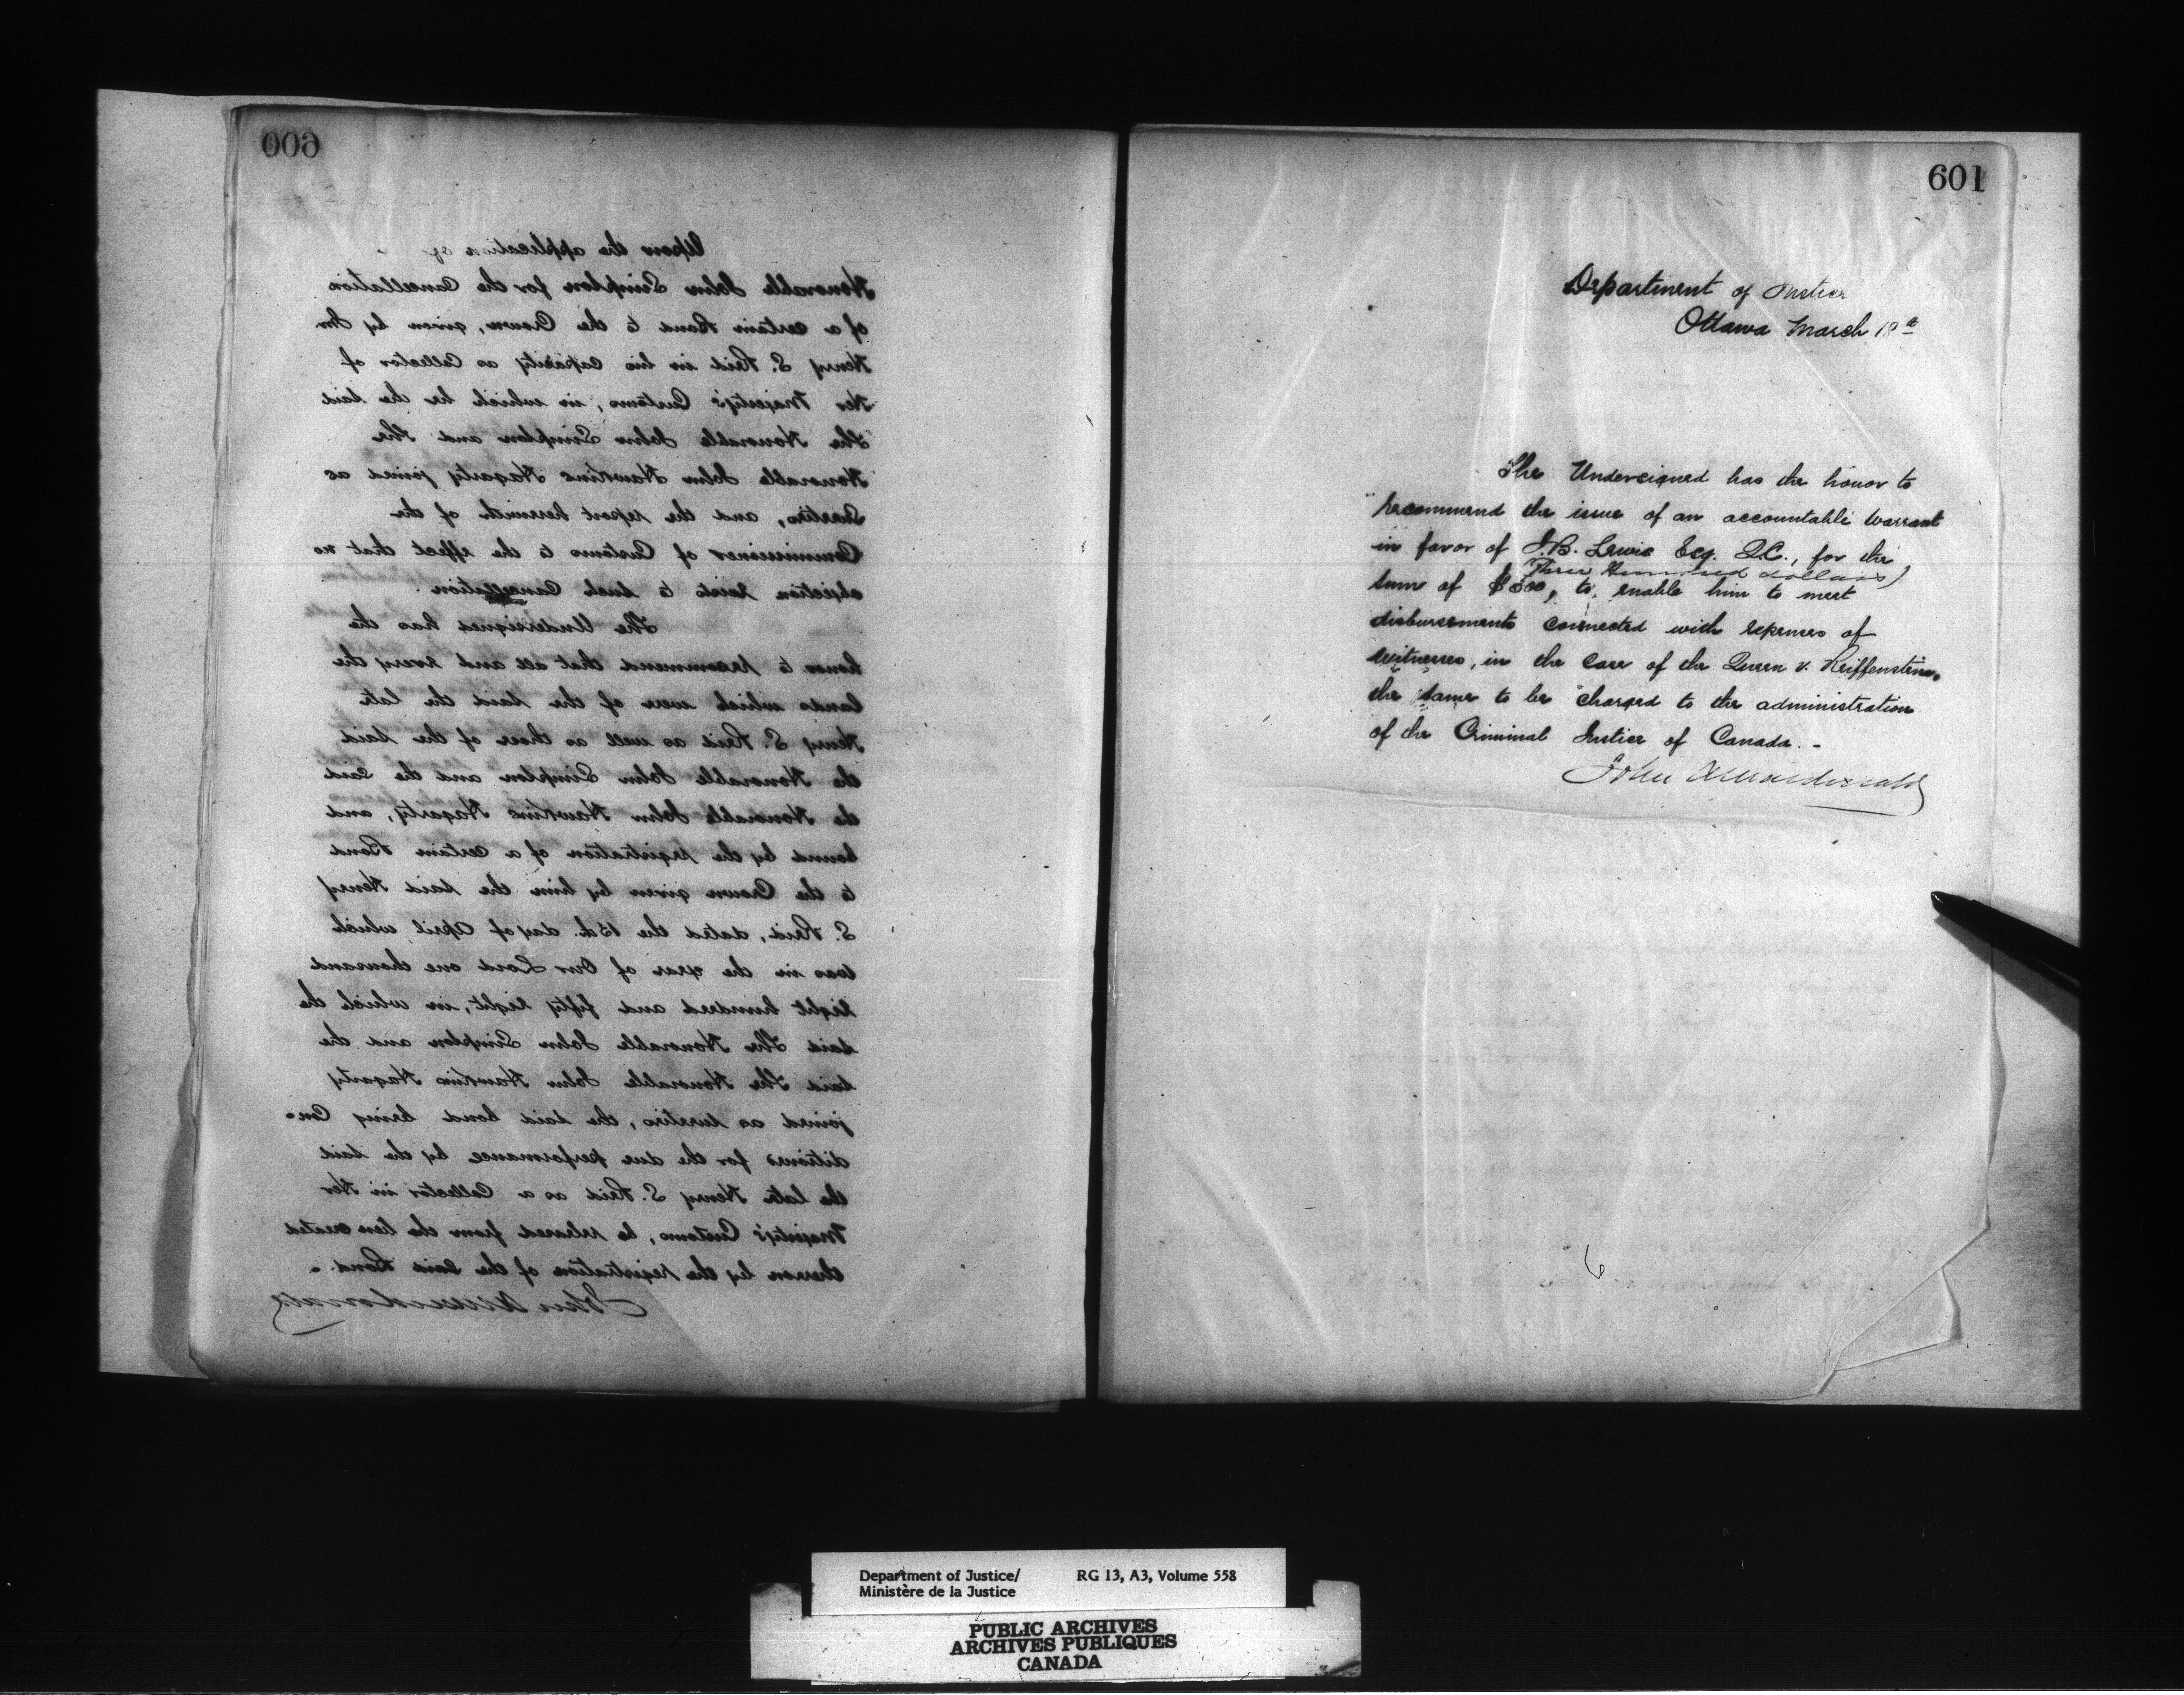 600
Upon the application of
Honorable John Simpson for the Cancellation
of a certain Bond to the Crown, given by Mr
Henry S. Reid in his capacity as Collector of
Her Majesty's Customs, in which he the said
The Honorable John Simpson and The
Honorable John Hawkins Hagarty joined as
Sureties, and the report herewith of the
Commissioner of Customs to the effect that no
objection exists to such Cancellation.
The Undersigned has the
honor to recommend that all and every the
lands which were of the said the late
Henry S. Reid as well as those of the said
the Honorable John Simpson and the said
the Honorable John Hawkins Hagarty, and
bound by the registration of a certain Bond
to the Crown given by him the said Henry
S. Reid, dated the 15th. day of April which
was in the year of Our Lord one thousand
eight hundred and fifty eight, in which the
said The Honorable John Simpson and the
said The Honorable John Hawkins Hagarty
joined as sureties, the said bond being Con-
ditioned for the due performance by the said
the late Henry S. Reid as a Collector in Her
Majesty's Customs, be released from the lien created
thereon by the registration of the said Bond. -
John A Macdonald
601
Department of Justice
Ottawa March 18th
The Undersigned has the honor to
recommend the issue of an accountable Warrant
in favor of J.B. Lewis Esq. Q.C., for the
Three Hundred dollars)
sum of $300, to enable him to meet
disbursements connected with expenses of
witnesses, in the case of the Queen v. Reiffenstein,
the same to be charged to the administration
of the Criminal Justice of Canada. -
John A Macdonald
6
Department of Justice/ RG 13, A3, Volume 558
Ministère de la Justice
PUBLIC ARCHIVES
ARCHIVES PUBLIQUES
CANADA